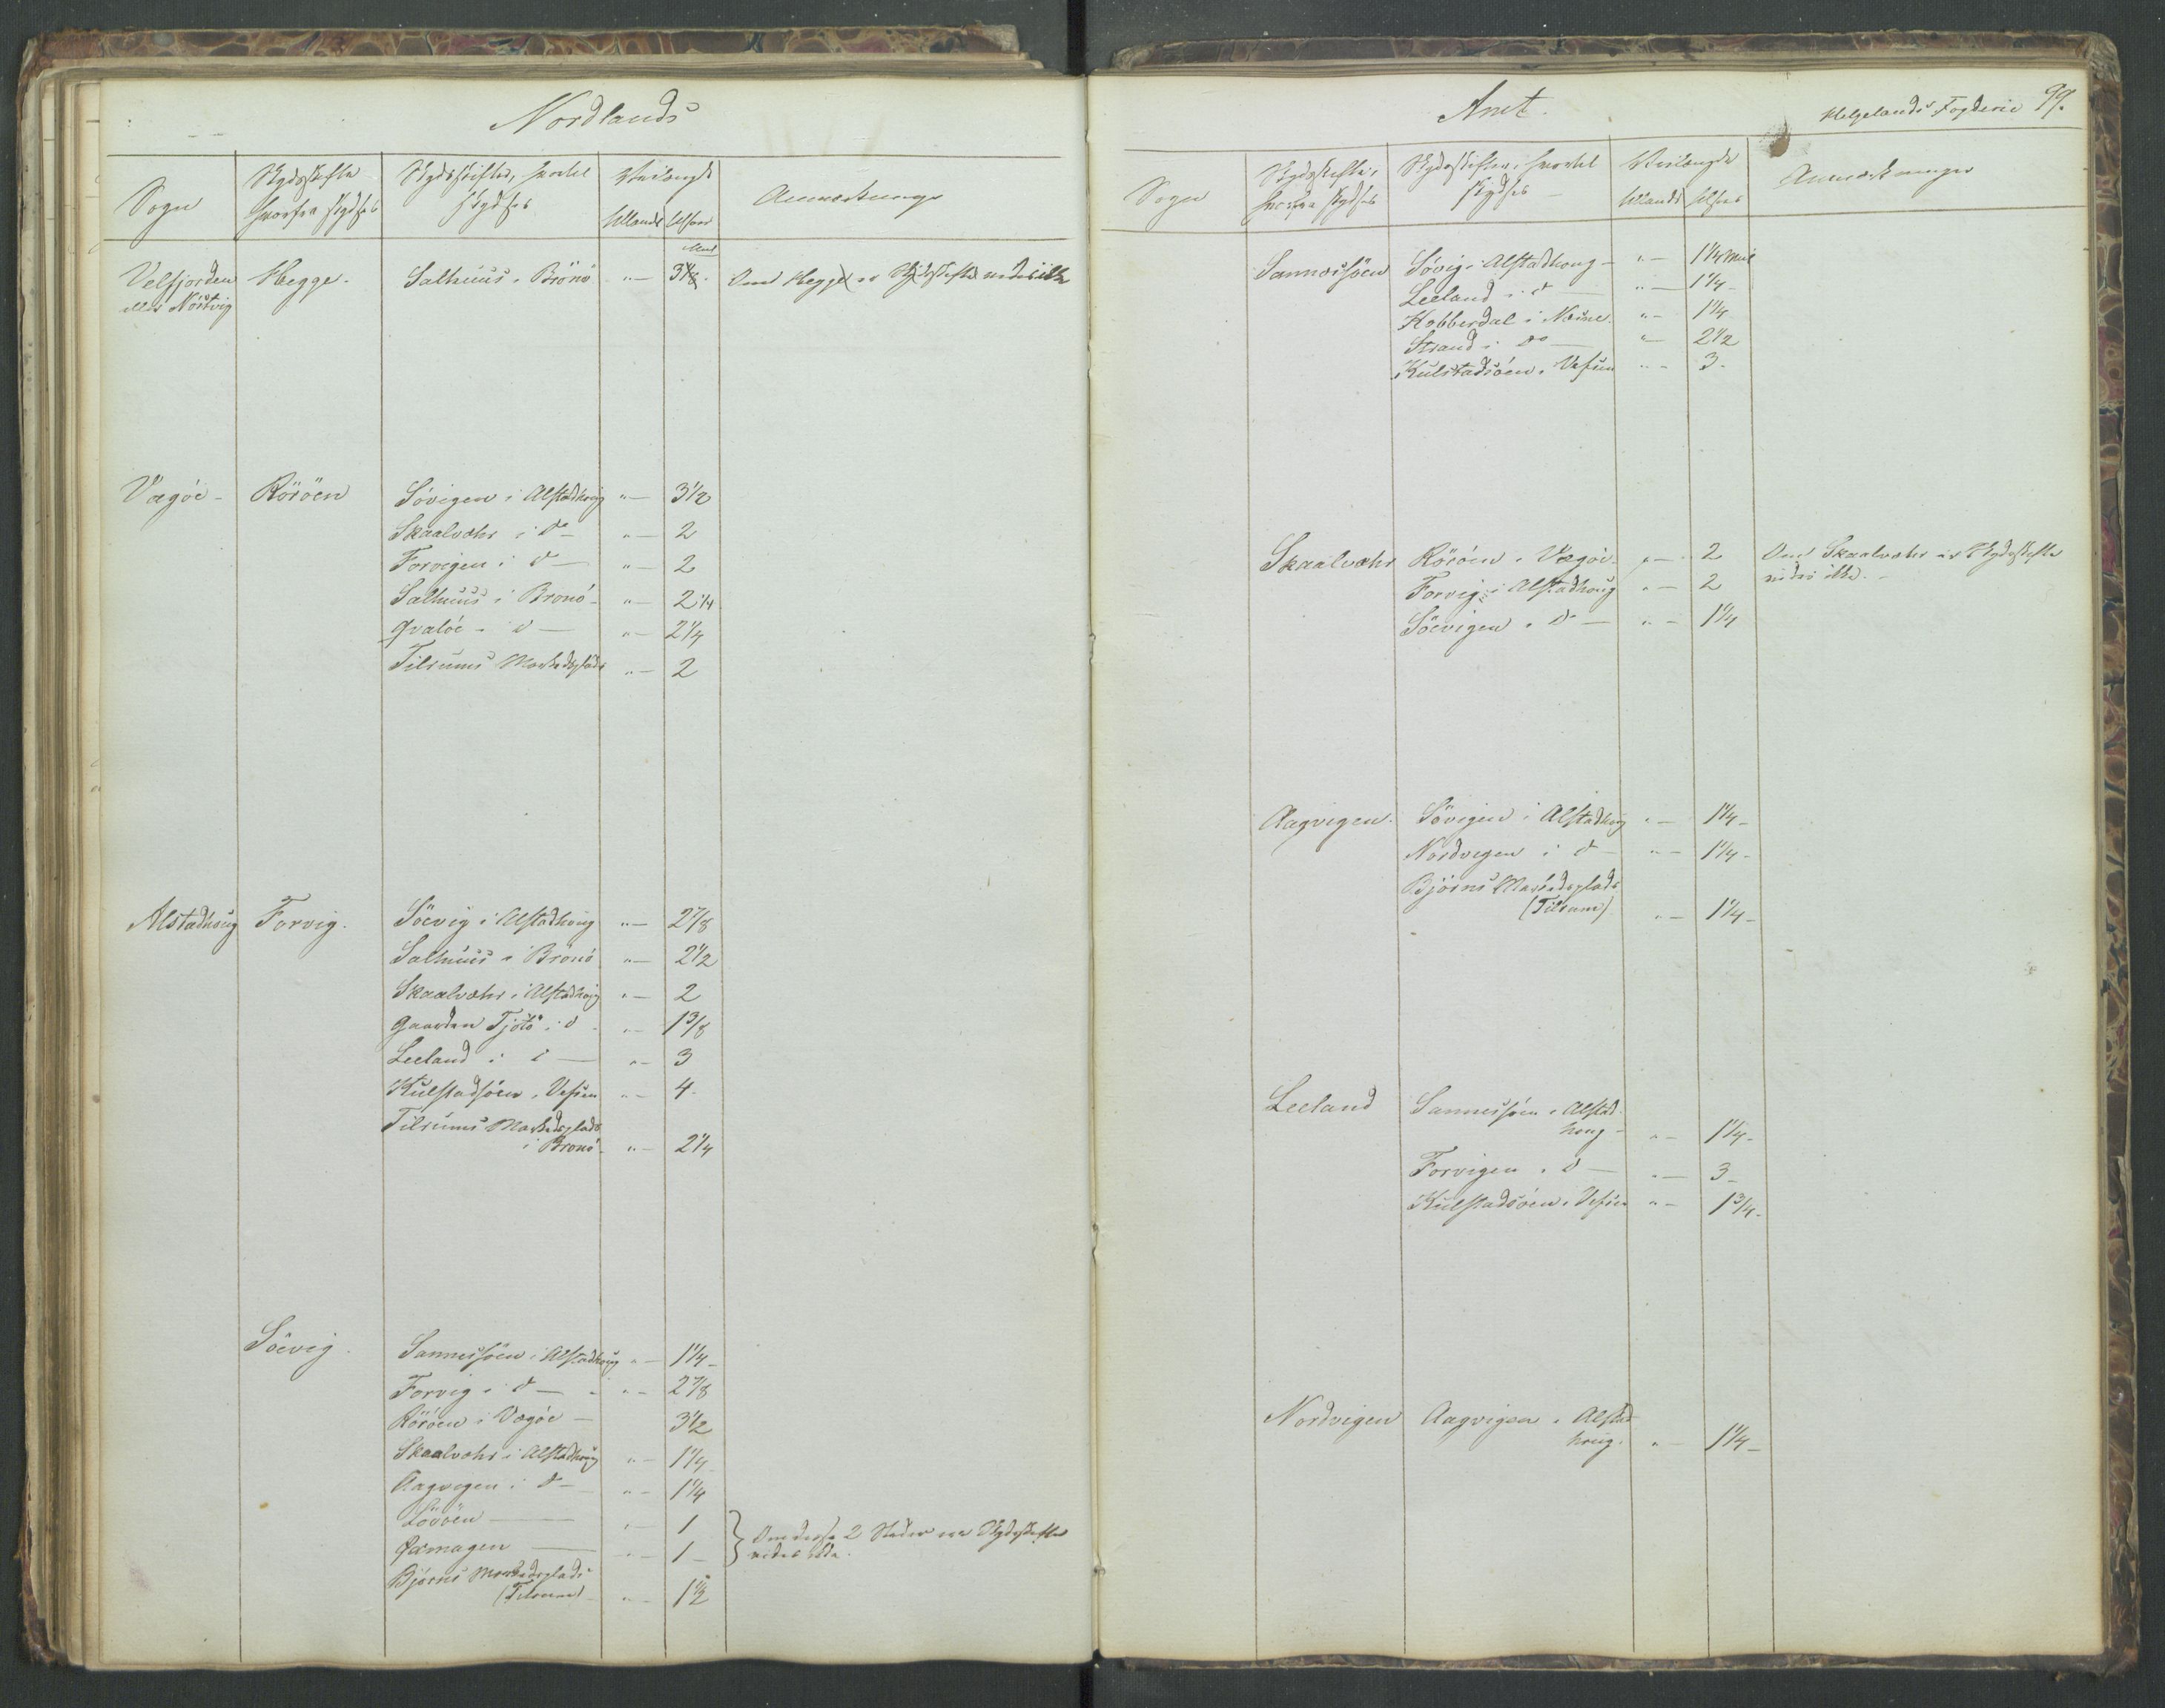 Nordlands
Sogn
Skydsskifte hvorfra skydses
Skydsskifter, hvortil skydses
Veilængde
tillands
tilsøes
Anmærkninger
Velfjorden eller Nöstvig
Hegge.
Salhuus i Brönö " — 3 1/8 Miil
Om Hegge er Skydsskifte vides ikke
Vægöe - Röröen
Sövigen i Alstadhoug " — 3 1/2
Skaalvæhr i do — " — 2
Forvigen i do — " — 2
Salhuus i Brönö - " — 2 1/4
Qvalöe - do — " — 2 1/4
Tilrums Markedsplads " — 2
Alstadhoug Forvig.
Söevig i Alstadhoug " — 2 7/8
Salhuus i Brönö " — 2 1/2
Skaalvæhr i Alstadhoug " — 2
Gaarden Tjötö i do " — 1 3/8
Leeland i do — " — 3
Kulstadsöen i Vefsen " — 4.
Tilrums Markedsplads
i Brönö - " — 2 1/4
Söevig.
Sannessöen i Alstadhoug " — 1 1/4 -
Forvig i do — " — 2 7/8
Röröen i Vægöe — 3 1/2
Skaalvæhr i Alstadhoug " — 1 1/4
Aagvigen i do — " — 1 1/4
Lövöen — " — 1
— " — 1 -
} Om disse 2 Steder ere Skydsskifter
vides ikke.
Björns Markedsplads
(Tilrum) - " — 1 1/2
Amt.
Helgelands Fogderie 99.
Sogn
Skydsskifte, hvorfra skydses
Skydsskifter, hvortil skydses —
Veilængde
tillands
tilsøes
Anmærkninger
Sannessöen
Sövig i Alstadhoug — " — 1 1/4 Miil
Leeland i do — " — 1 1/4 -
Kobberdal i Næsne. " — 1 1/4
Strand i do — " — 2 1/2
Kulstadsöen i Vefsen " — 3.
Skaalvæhr
Röröen i Vægöe. " — 2
Om Skaalvæhr er Skydsskifte
vides ikke. -
Forvig i Alstadhoug " — 2
Söevigen i do — " — 1 1/4
Aagvigen.
Sövigen i Alstadhoug " — 1 1/4 -
Nordvigen i do — " — 1 1/4 -
Björns Markedsplads
(Tilrum). " — 1 1/4 -
Leeland
Sannessöen i Alstad-
houg - " — 1 1/4 -
Forvigen i do — " — 3 -
Kulstadsöen i Vefsen " — 1 3/4 -
Nordvigen
Aagvigen i Alstad-
houg. " — 1 1/4 -